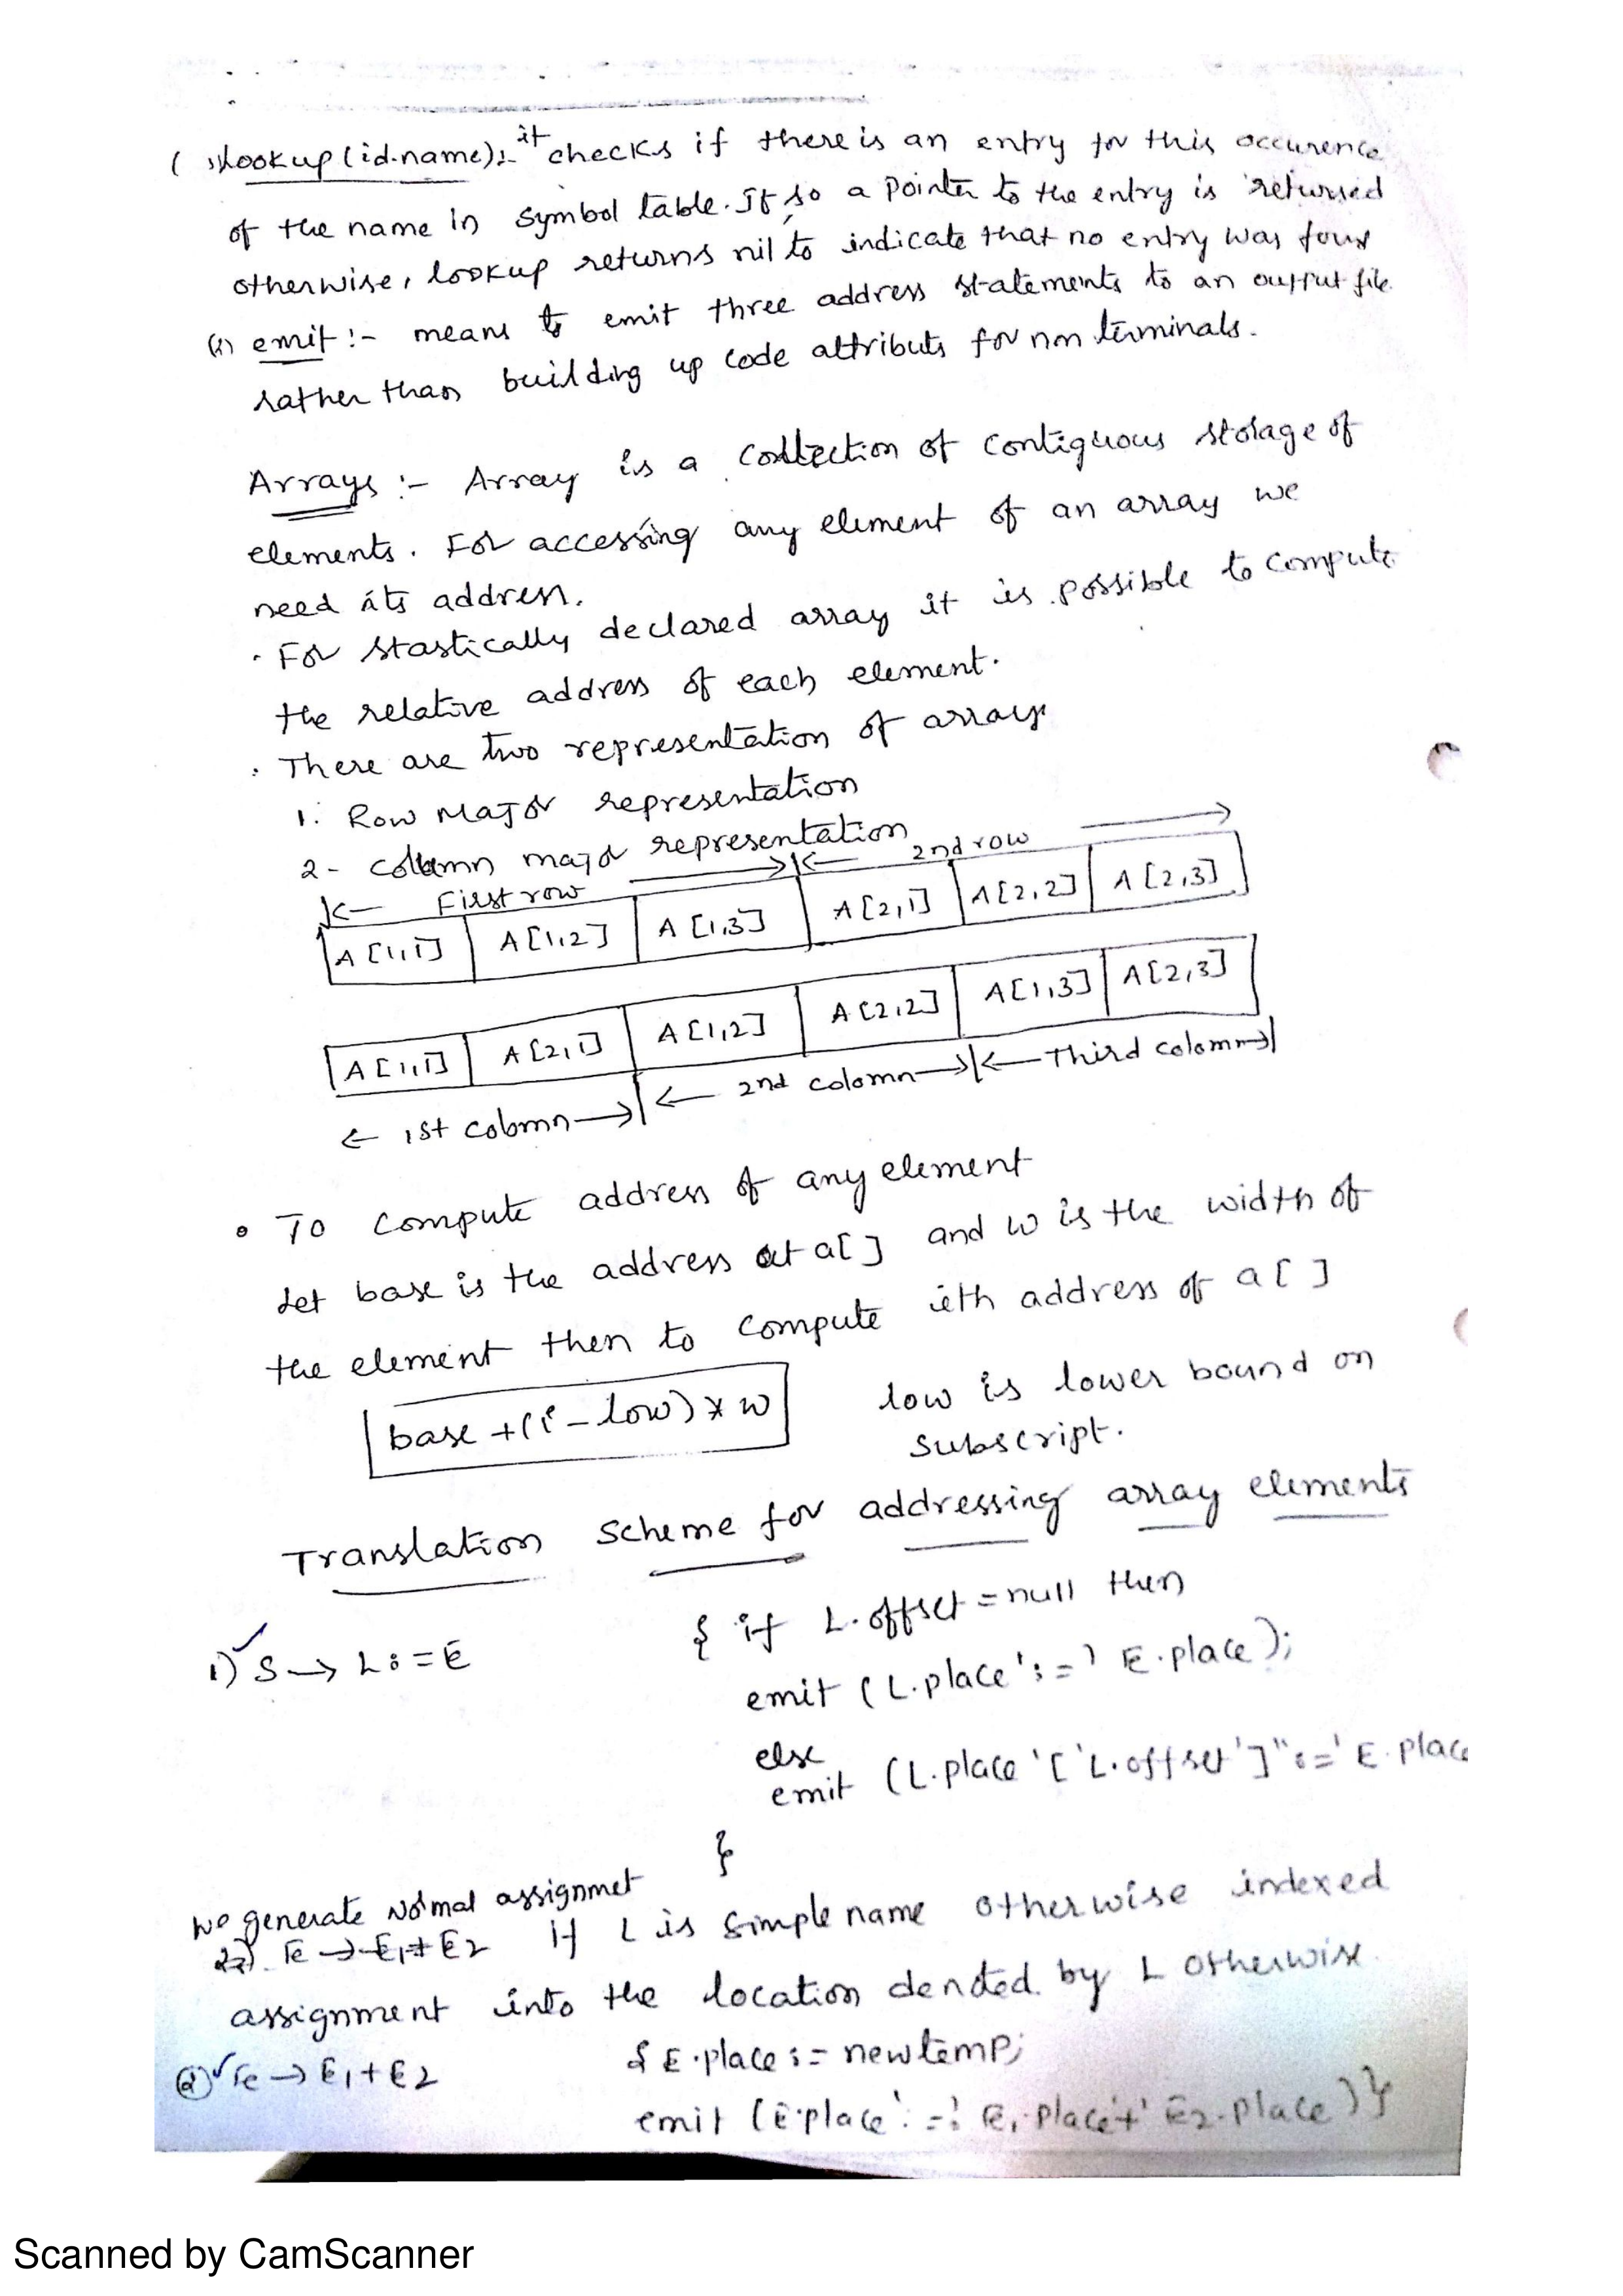 ( i) Lookup (id.name):- it checks if there is an entry for this occurence
of the name in symbol table. If so a pointer to the entry is returned
otherwise, lookup returns nil to indicate that no entry was found
(ii) emit :- means to emit three address statements to an output file
rather than building up code attributs for non terminals.
Arrays :- Array is a collection of contiguous storage of
elements. For accessing any element of an array we
need its address.
· For stastically declared array it is possible to compute
the relative address of each element.
· There are two representation of arrays
1. Row Major representation
2- column major representation
First row 2nd row
A [1,1] A [1,2] A [1,3] A [2,1] A [2,2] A [2,3]
A [1,1] A [2,1] A [1,2] A [2,2] A [1,3] A [2,3]
← 1st colomn → ← 2nd colomn → ← Third colomn →
• To compute address of any element
Let base is the address at a[ ] and w is the width of
the element then to compute ieth address of a [ ]
base + (i - low) * w low is lower bound on
subscript.
Translation scheme for addressing array elements
1) S → L := E { if L.offset = null then
emit ( L.place ':=' E.place );
else
emit (L.place '[' L.offset ']' ':=' E.place
}
we generate Normal assignmet
E → E1 + E2 if L is simple name otherwise indexed
assignment into the location denoted by L otherwise.
(2) E → E1 + E2 { E.place := newtemp;
emit (E.place ':=' E1.place '+' E2.place ) }
Scanned by CamScanner